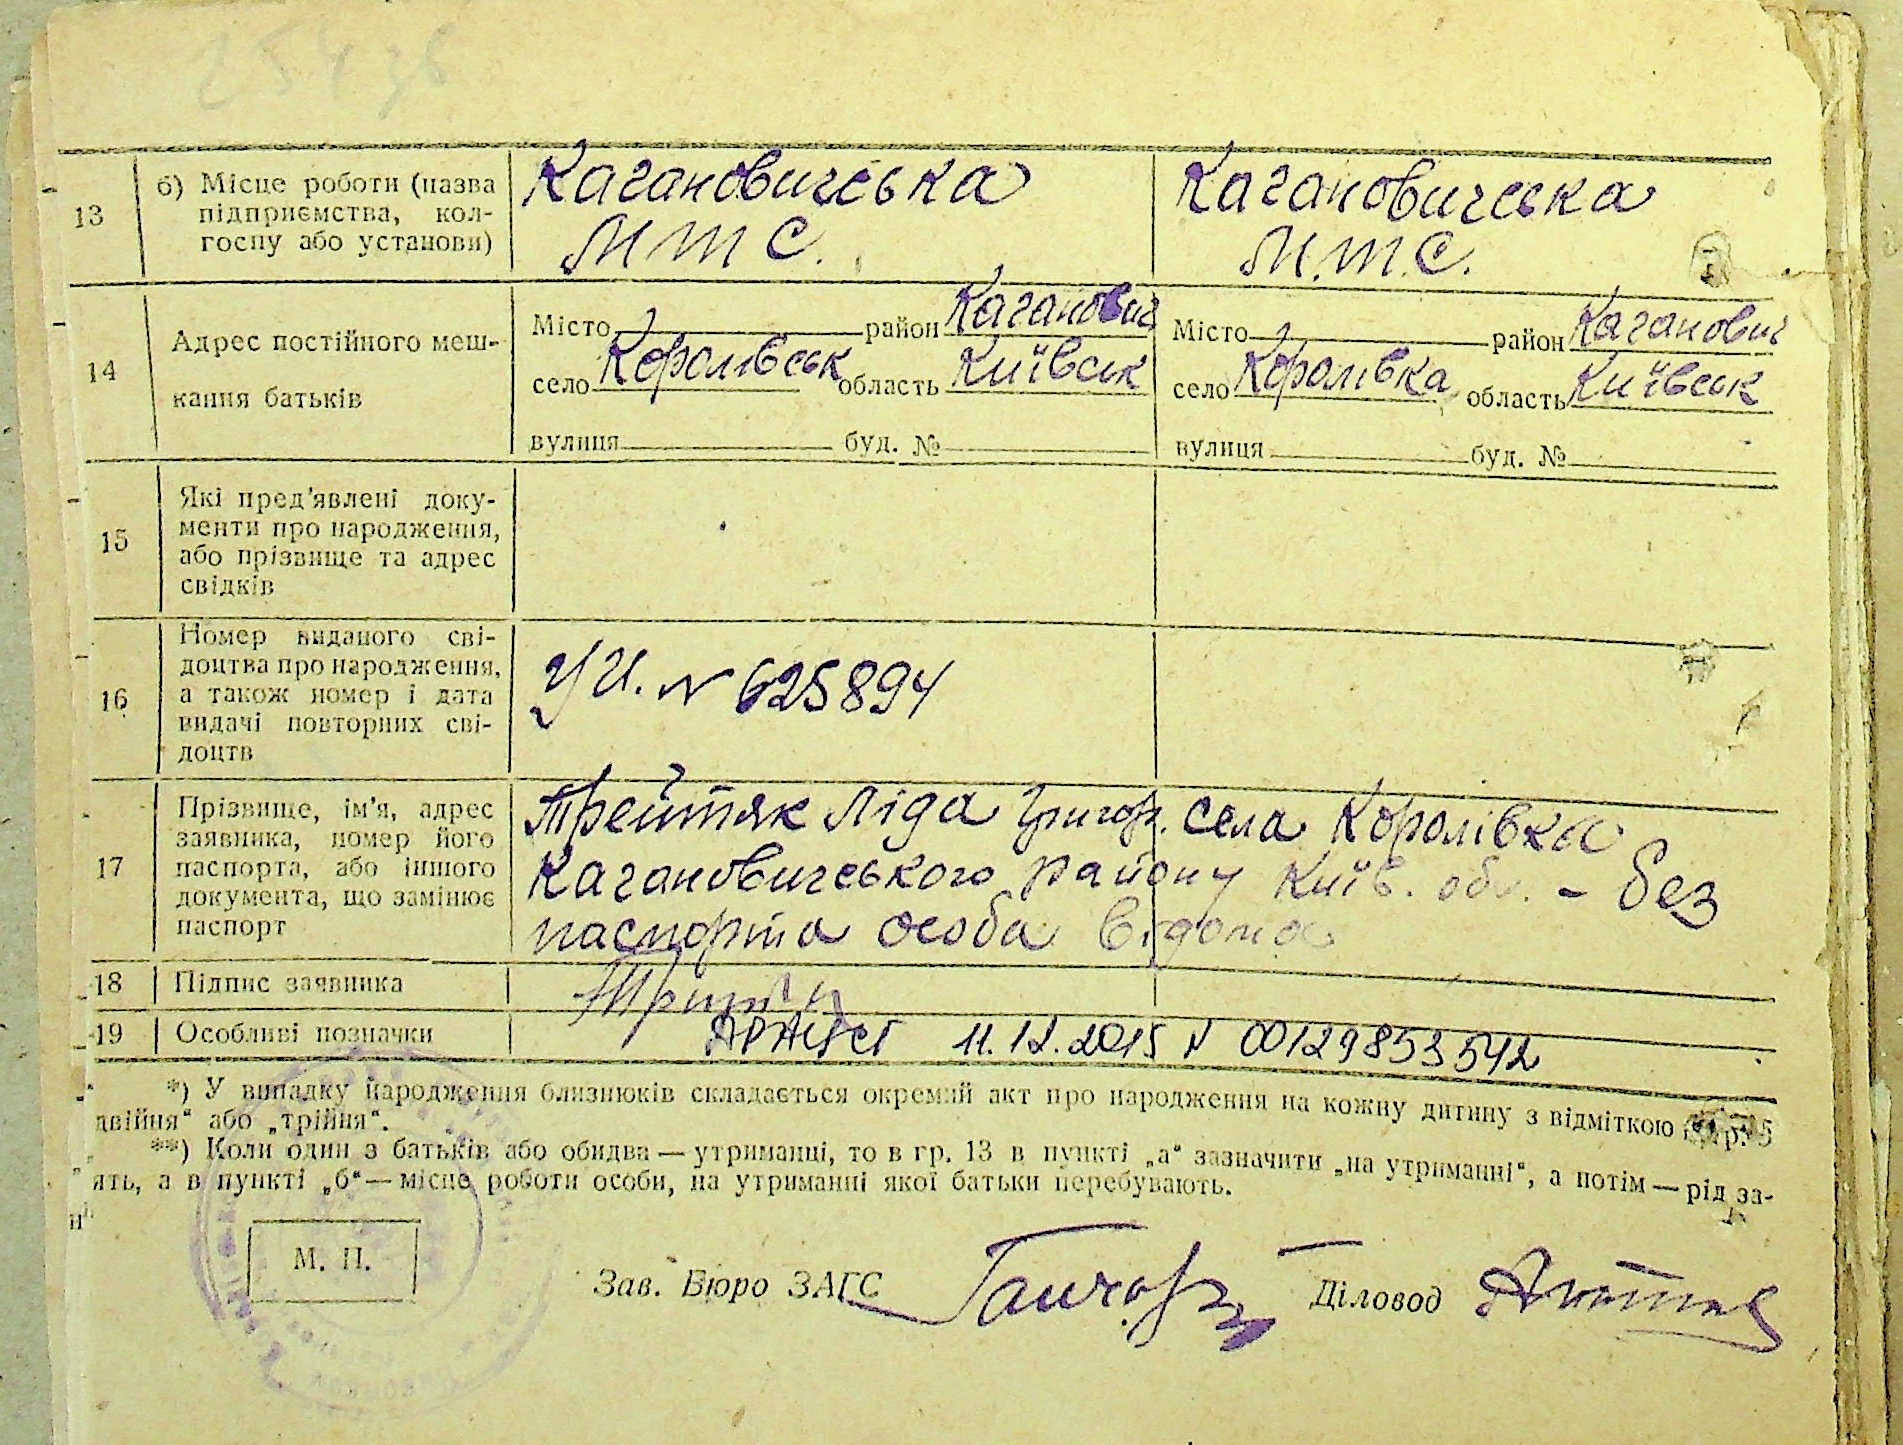 25436
13 б) Місце роботи (назва підприємства, кол-госпу або установи)
Кагановичська
М Т С.
Кагановичська
М.Т.С.
14 Адрес постійного меш-
кання батьків
Місто район Каганович
село Королівськ область Київськ
вулиця буд. №
Місто район Каганович
село Королівка область Київськ
вулиця буд. №
15 Які пред'явлені доку-
менти про народження,
або прізвище та адрес
свідків
16 Номер виданого сві-
доцтва про народження,
а також номер і дата
видачі повторних сві-
доцтв
УИ. № 625894
17 Прізвище, ім'я, адрес
заявника, номер його
паспорта, або іншого
документа, що замінює
паспорт
Трейтяк Ліда Григор. села Королівка
Кагановичського району Київ. обл. - без
паспорта особа відома
18 Підпис заявника
19 Особливі позначки
11.12.2015 № 00129853542
*) У випадку народження близнюків складається окремий акт про народження на кожну дитину з відміткою
двійня" або „трійня".
**) Коли один з батьків або обидва — утриманці, то в гр. 13 в пункті „а" зазначити „на утриманні", а потім — рід за-
ять, а в пункті „б" — місце роботи особи, на утриманні якої батьки перебувають.
М. П.
Зав. Бюро ЗАГС
Діловод